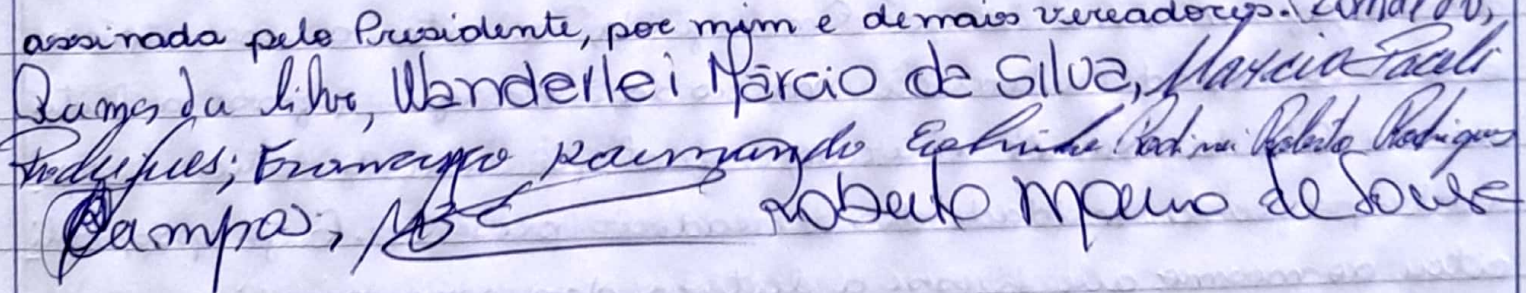 assinada pelo Presidente, por mim e demais vereadores.
Ramos da Silva, Wanderlei Márcio da Silva, Marcio Pauli
Rodrigues; Francisco Raimundo Roberto Rodrigues
Campos, Roberto Mauro de Souse